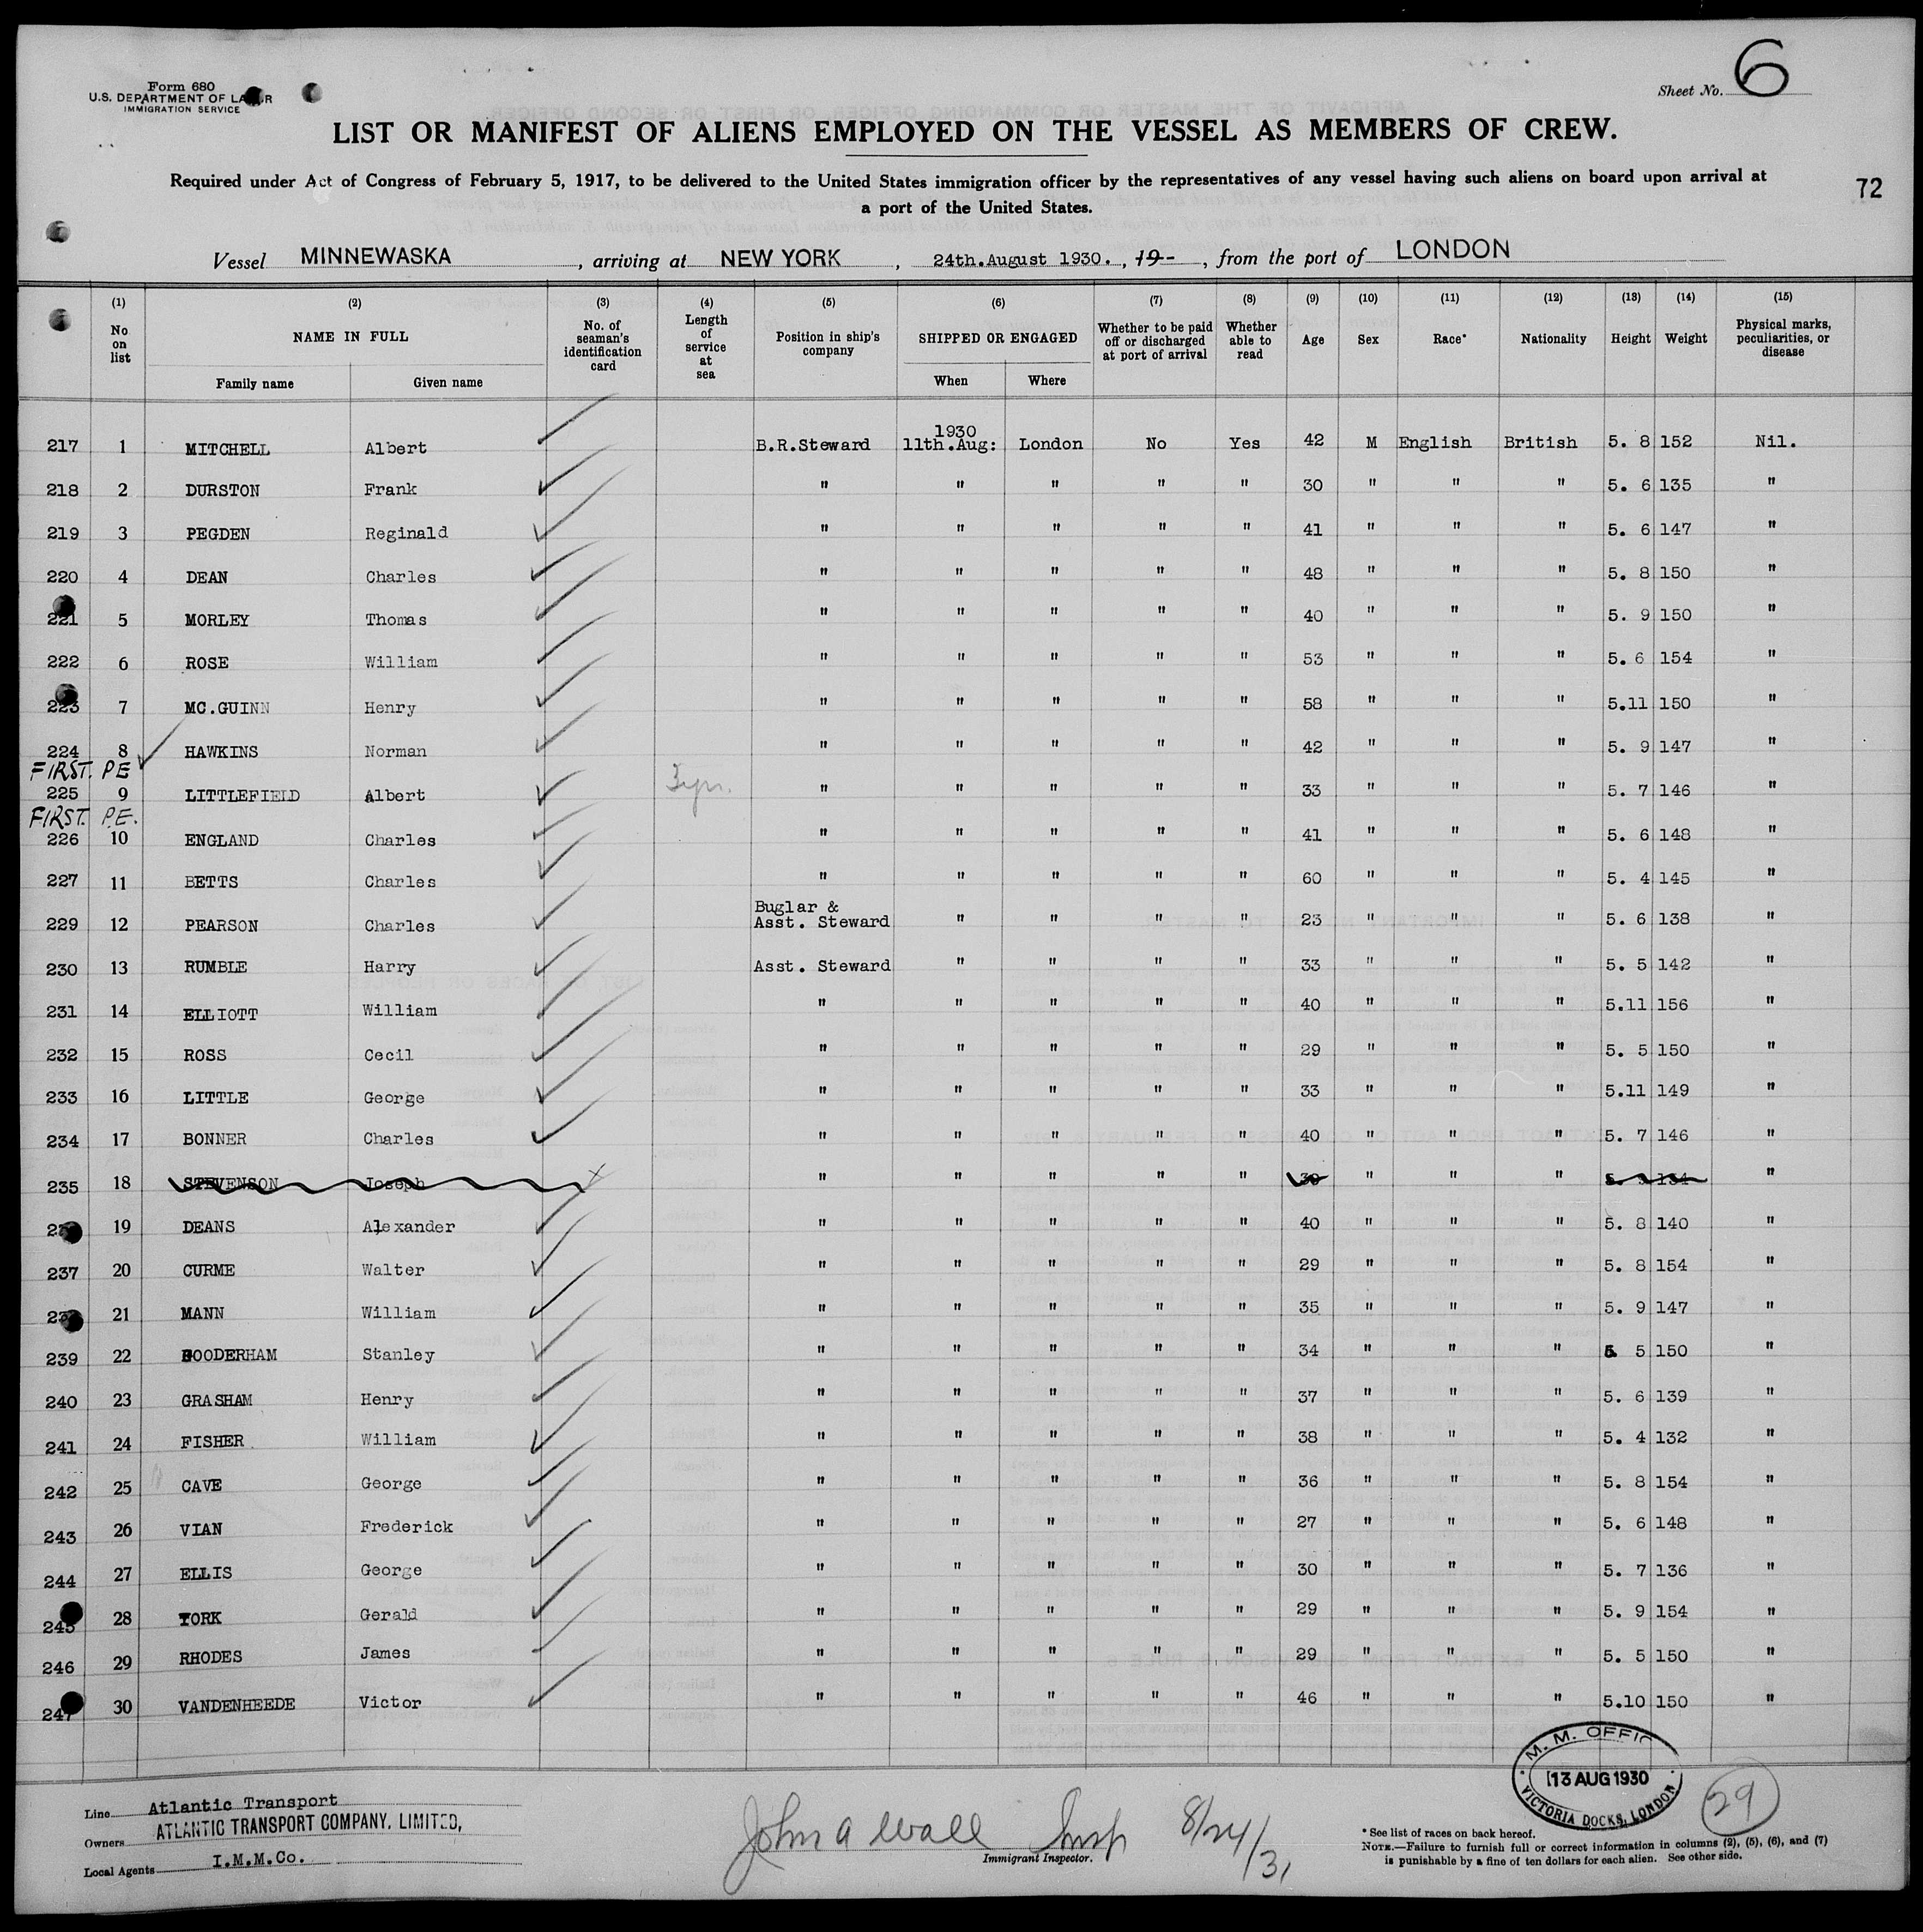 Form 680
U.S. DEPARTMENT OF LABOR
IMMIGRATION SERVICE
Sheet No. 6
LIST OR MANIFEST OF ALIENS EMPLOYED ON THE VESSEL AS MEMBERS OF CREW.
Required under Act of Congress of February 5, 1917, to be delivered to the United States immigration officer by the representatives of any vessel having such aliens on board upon arrival at
a port of the United States.
72
Vessel MINNEWASKA, arriving at NEW YORK, 24th.August 1930., 19--, from the port of LONDON
(1) (2) (3) (4) (5) (6) (7) (8) (9) (10) (11) (12) (13) (14) (15)
No on list NAME IN FULL No. of seaman's identification card Length of service at sea Position in ship's company SHIPPED OR ENGAGED Whether to be paid off or discharged at port of arrival Whether able to read Age Sex Race* Nationality Height Weight Physical marks, peculiarities, or disease
Family name Given name When Where
1930
217 1 MITCHELL Albert B.R.Steward 11th.Aug: London No Yes 42 M English British 5. 8 152 Nil.
218 2 DURSTON Frank " " " " " 30 " " " 5. 6 135 "
219 3 PEGDEN Reginald " " " " " 41 " " " 5. 6 147 "
220 4 DEAN Charles " " " " " 48 " " " 5. 8 150 "
221 5 MORLEY Thomas " " " " " 40 " " " 5. 9 150 "
222 6 ROSE William " " " " " 53 " " " 5. 6 154 "
223 7 MC.GUINN Henry " " " " " 58 " " " 5.11 150 "
224 8 HAWKINS Norman " " " " " 42 " " " 5. 9 147 "
FIRST. PE
225 9 LITTLEFIELD Albert " " " " " 33 " " " 5. 7 146 "
FIRST. P.E.
226 10 ENGLAND Charles " " " " " 41 " " " 5. 6 148 "
227 11 BETTS Charles " " " " " 60 " " " 5. 4 145 "
Buglar &
229 12 PEARSON Charles Asst. Steward " " " " 23 " " " 5. 6 138 "
230 13 RUMBLE Harry Asst. Steward " " " " 33 " " " 5. 5 142 "
231 14 ELLIOTT William " " " " " 40 " " " 5.11 156 "
232 15 ROSS Cecil " " " " " 29 " " " 5. 5 150 "
233 16 LITTLE George " " " " " 33 " " " 5.11 149 "
234 17 BONNER Charles " " " " " 40 " " " 5. 7 146 "
235 18 STEVENSON Joseph " " " " " " " " "
19 DEANS Alexander " " " " " 40 " " " 5. 8 140 "
237 20 CURME Walter " " " " " 29 " " " 5. 8 154 "
21 MANN William " " " " " 35 " " " 5. 9 147 "
239 22 GOODERHAM Stanley " " " " " 34 " " " 5 5 150 "
240 23 GRASHAM Henry " " " " " 37 " " " 5. 6 139 "
241 24 FISHER William " " " " " 38 " " " 5. 4 132 "
242 25 CAVE George " " " " " 36 " " " 5. 8 154 "
243 26 VIAN Frederick " " " " " 27 " " " 5. 6 148 "
244 27 ELLIS George " " " " " 30 " " " 5. 7 136 "
245 28 YORK Gerald " " " " " 29 " " " 5. 9 154 "
246 29 RHODES James " " " " " 29 " " " 5. 5 150 "
247 30 VANDENHEEDE Victor " " " " " 46 " " " 5.10 150 "
M. M. OFFIC
13 AUG 1930
VICTORIA DOCKS, LONDON
29
Line Atlantic Transport
Owners ATLANTIC TRANSPORT COMPANY, LIMITED,
Local Agents I.M.M.Co.
John A Wall Insp 8/24/31
Immigrant Inspector.
* See list of races on back hereof.
NOTE.—Failure to furnish full or correct information in columns (2), (5), (6), and (7)
is punishable by a fine of ten dollars for each alien. See other side.